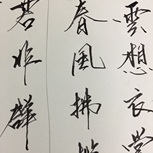 雲想衣
春風拂
若非群